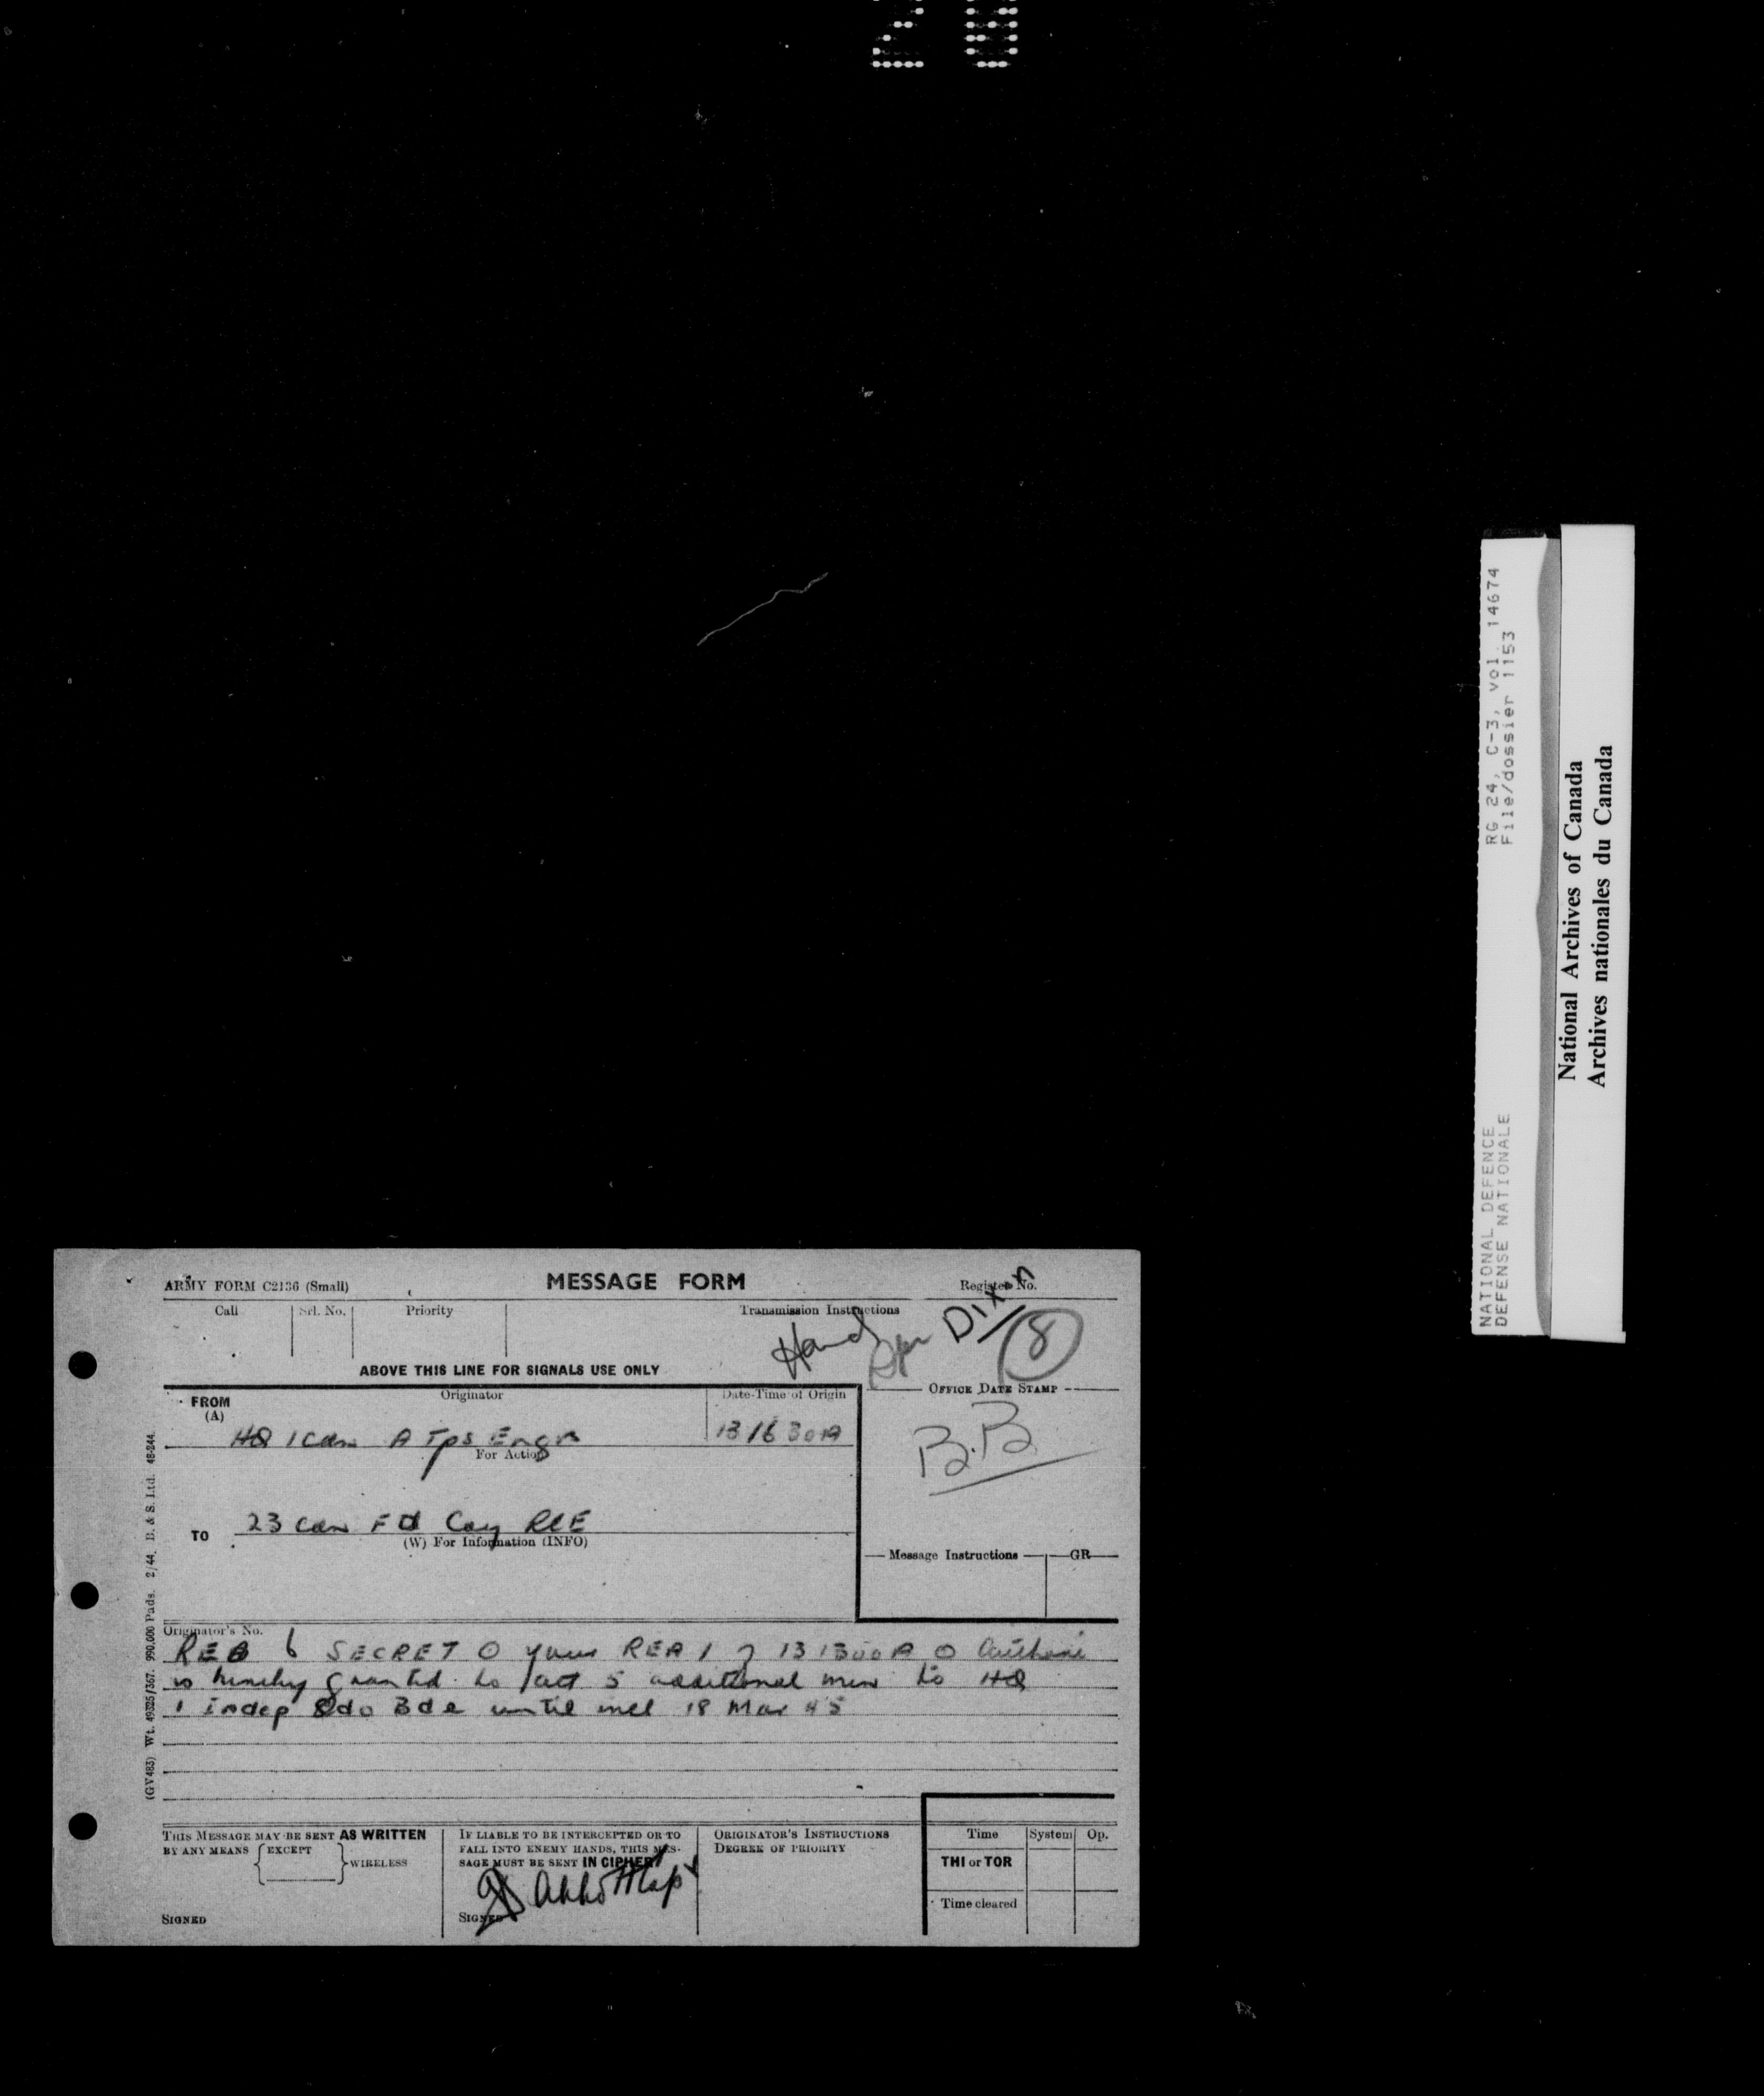 20
ARMY FORM C2136 (Small)
MESSAGE FORM
Register No.
Call
Srl. No.
Priority
Transmission Instructions
Hand
Spr Dixon
8
ABOVE THIS LINE FOR SIGNALS USE ONLY
FROM
(A)
Originator
Date-Time of Origin
OFFICE DATE STAMP
HQ 1 Cdn A Tps Engrs
131630A
B.B
For Action
TO
23 Cdn Fd Coy RCE
(W) For Information (INFO)
Message Instructions
GR
Originator's No.
REB 6 SECRET O your REA 1 of 131300A O
is hereby granted to att 5 additional men to HQ
1 indep Bde until incl 18 Mar 45
THIS MESSAGE MAY BE SENT AS WRITTEN
BY ANY MEANS
EXCEPT
WIRELESS
SIGNED
IF LIABLE TO BE INTERCEPTED OR TO
FALL INTO ENEMY HANDS, THIS MES-
SAGE MUST BE SENT IN CIPHER
Abbott Capt
SIGNED
ORIGINATOR'S INSTRUCTIONS
DEGREE OF PRIORITY
Time
System
Op.
THI or TOR
Time cleared
(GV483) Wt. 49325/367. 990,000 Pads. 2/44. D. & S. Ltd. 48-244.
NATIONAL DEFENCE
DEFENSE NATIONALE
RG 24, C-3, vol. 14674
File/dossier 1153
National Archives of Canada
Archives nationales du Canada